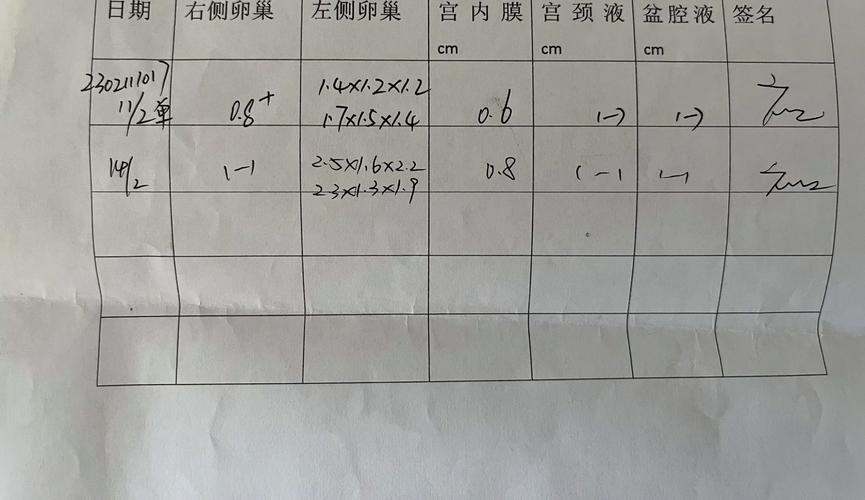 日期 右侧卵巢 左侧卵巢 宫内膜 宫颈液 盆腔液 签名
cm cm cm
230211017
11/2单 0.8+ 1.4×1.2×1.2 0.6 (-) (-)
1.7×1.5×1.4
14/2 (-) 2.5×1.6×2.2 0.8 (-) (-)
2.3×1.3×1.9